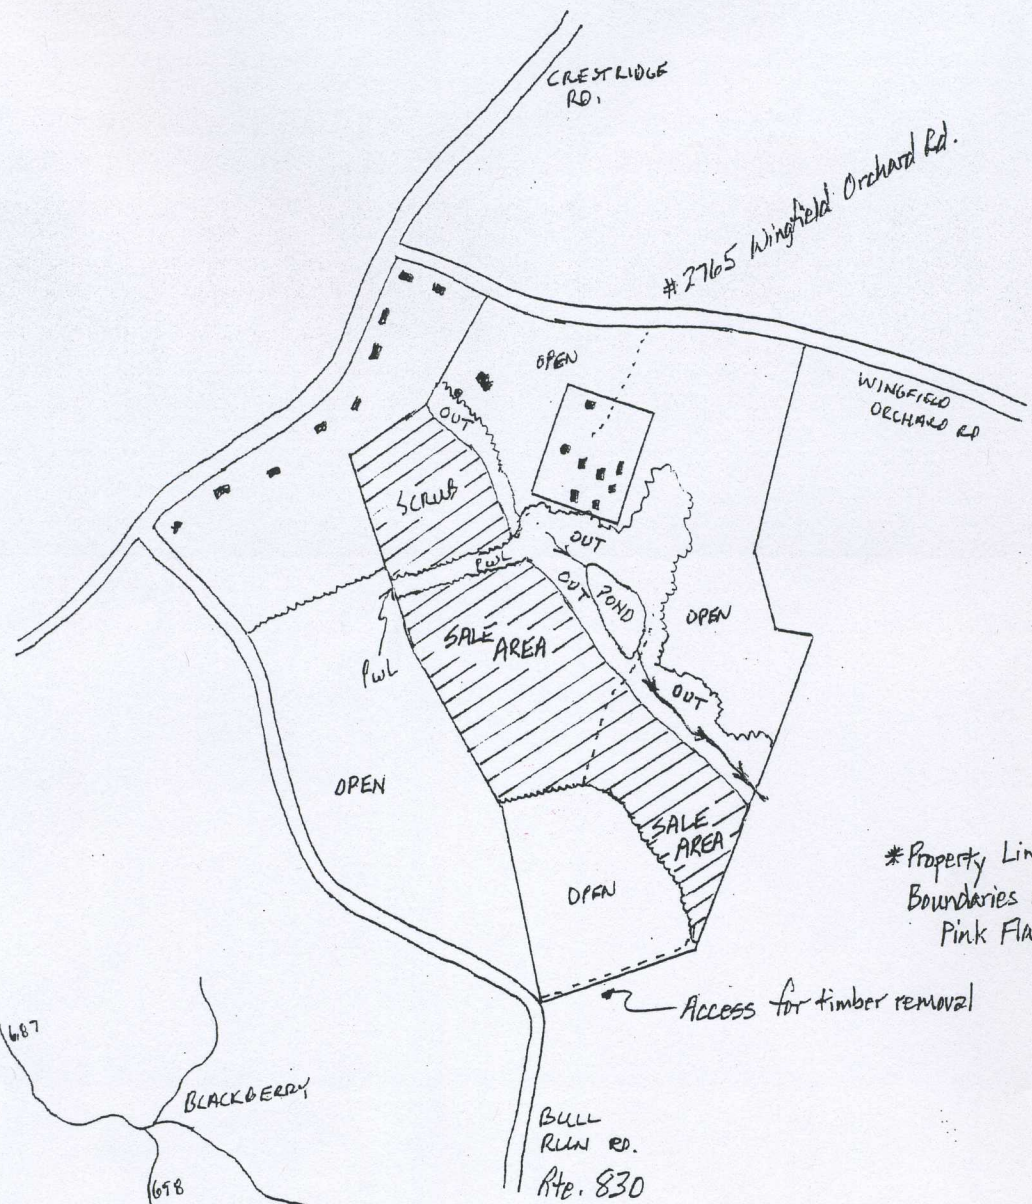 CRESTRIDGE
RD.
#2765 Wingfield Orchard Rd.
OPEN
WINGFIELD
ORCHARD RD
OUT
SCRUB
OUT
PWL
OUT
POND
OPEN
SALE
AREA
PWL
OUT
OPEN
SALE
AREA
OPEN
*Property Lin
Boundaries
Pink Fla
Access for timber removal
687
BLACKBERRY
698
BULL
RUN RD.
Rte. 830